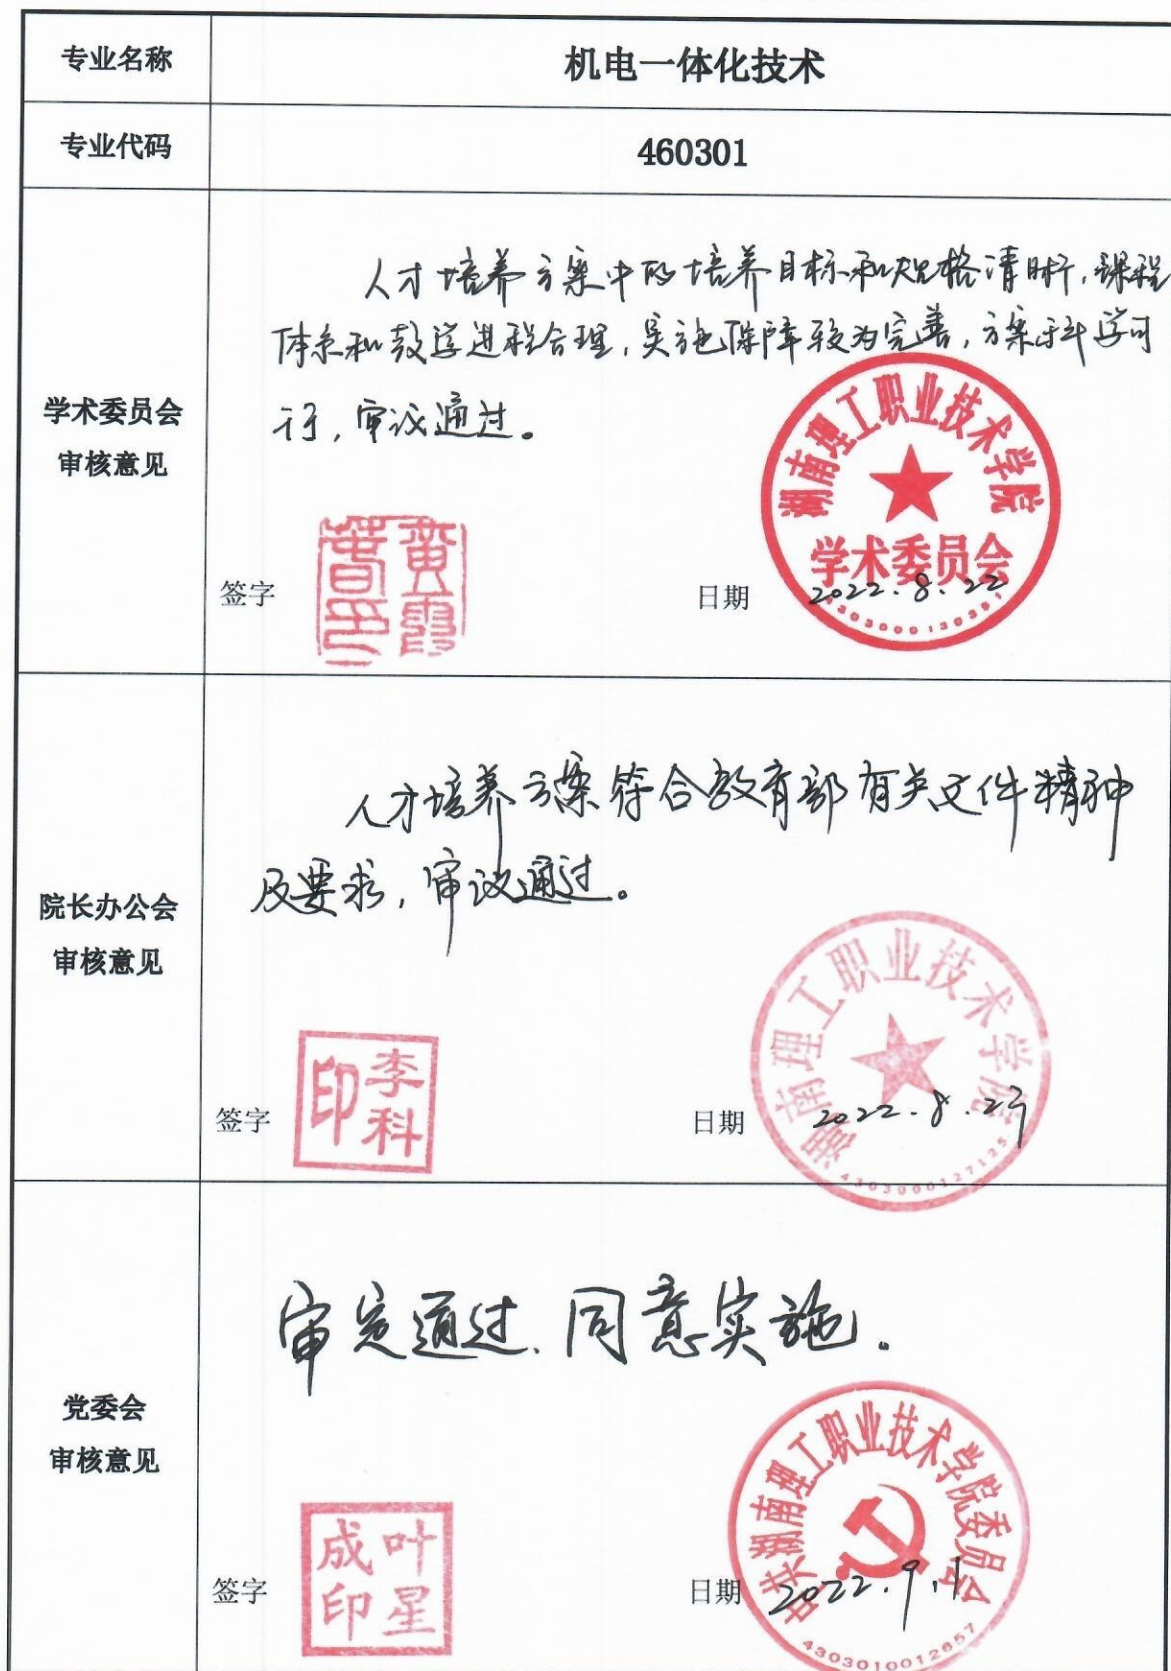 专业名称
机电一体化技术
专业代码
460301
学术委员会
审核意见
人才培养方案中的培养目标和规格清晰,课程
体系和教学进程合理,实施保障较为完善,方案科学可
行,审议通过。
签字
日期
2022.8.22
湖南理工职业技术学院
学术委员会
院长办公会
审核意见
人才培养方案符合教育部有关文件精神
及要求,审议通过。
签字
李科
印
日期
2022.8.23
湖南理工职业技术学院
4303000127125
党委会
审核意见
审定通过、同意实施。
签字
叶星
成印
日期
2022.9.1
中共湖南理工职业技术学院委员会
4303010012657